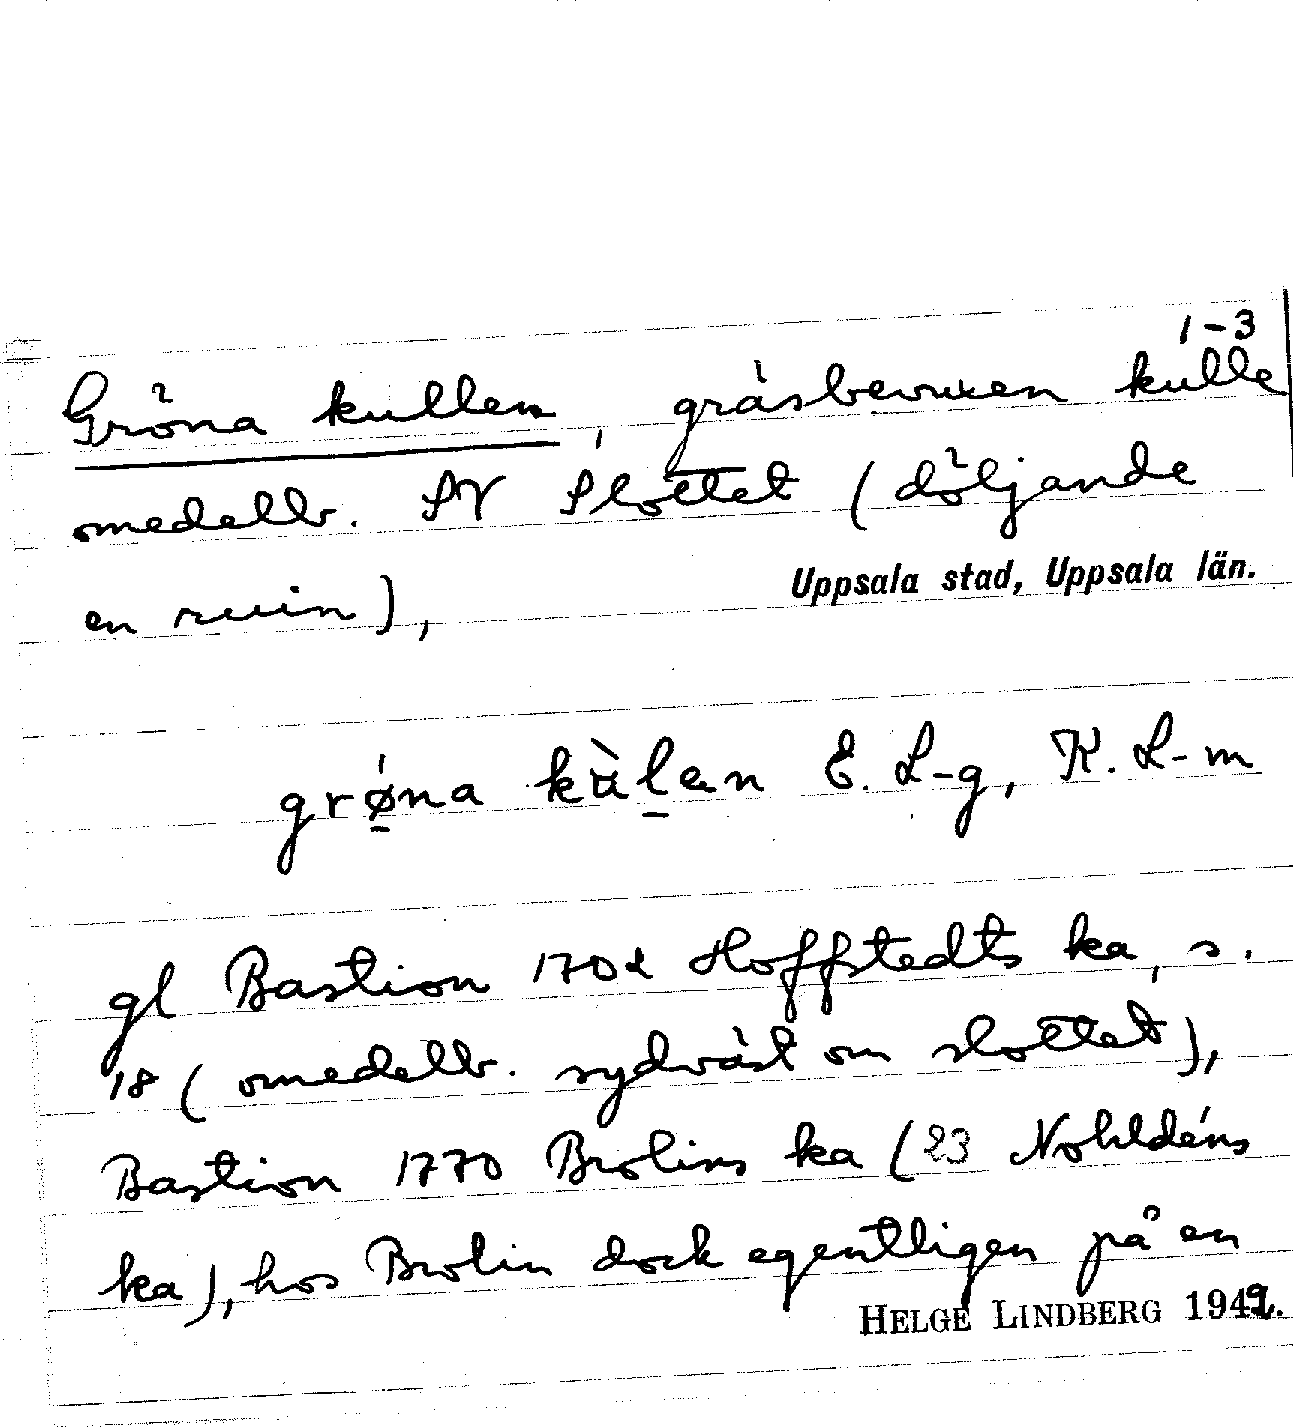 1-3
Gröna kullen, gräsbevuxen kulle
omedelb. SV Slottet (döljande
en ruin),
Uppsala stad, Uppsala län.
grǿ̱na kùḻen E. L-g, K. L-m
gl Bastion 1702 Hoffstedts ka, s.
18 (omedelb. sydväst om slottet),
Bastion 1770 Brolins ka (23 Nohldéns
ka), hos Brolin dock egentligen på en
HELGE LINDBERG 1949.